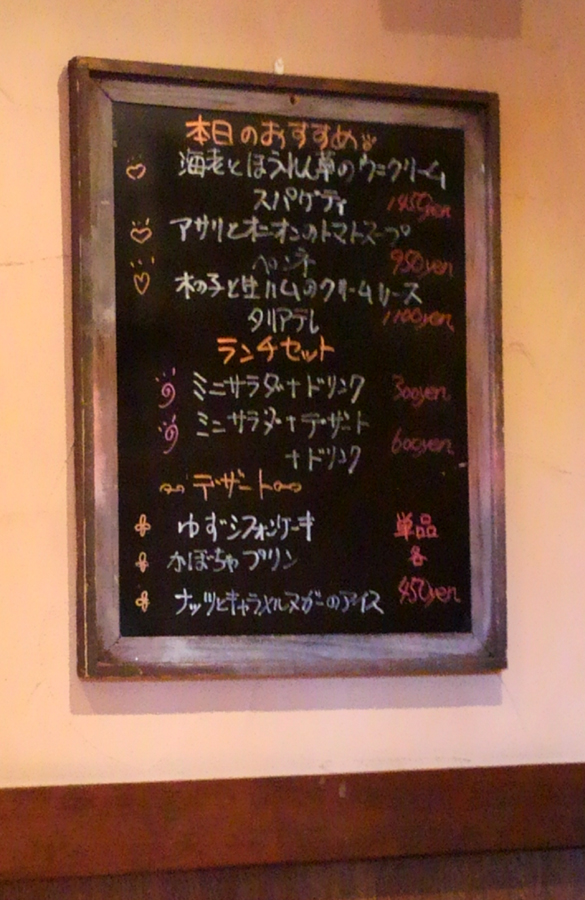 本日のおすすめ
海老とほうれん草のウニクリーム
スパゲティ 1450yen
アサリとオニオンのトマトスープ
ペンネ 950yen
木の子と生ハムのクリームソース
タリアテレ 1100yen
ランチセット
ミニサラダ+ドリンク 300yen
ミニサラダ+デザート
+ドリンク 600yen
デザート
ゆずシフォンケーキ 単品
かぼちゃプリン 各
ナッツとキャラメルヌガーのアイス 450yen